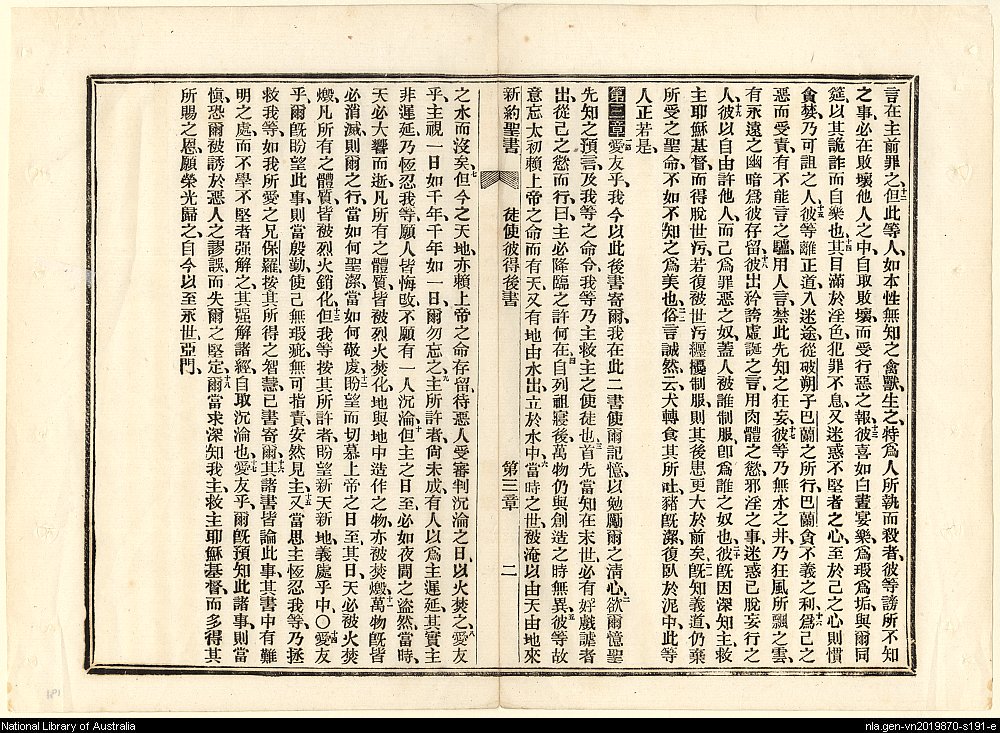 言在主前罪之、十二但此等人、如本性無知之禽獸、生之特爲人所執而殺者、彼等謗所不知
之事、必在敗壞他人之中、自取敗壞、而受行惡之報、十三彼喜如白晝宴樂、爲瑕爲垢、與爾同
筵、以其詭詐而自樂也、十四其目滿於淫色、犯罪不息、又迷惑不堅者之心、至於己之心則慣
貪婪、乃可詛之人、十五彼等離正道、入迷途、從破朔子巴蘭之所行、巴蘭貪不義之利、十六爲己之
惡而受責、有不能言之驢、用人言、禁此先知之狂妄、十七彼等乃無水之井、乃狂風所飄之雲、
有永遠之幽暗、爲彼存留、十八彼出矜誇虛誕之言、用肉體之慾、邪淫之事、迷惑已脫妄行之
人、十九彼以自由許他人、而己爲罪惡之奴、蓋人被誰制服、卽爲誰之奴也、二十彼旣因深知主救
主耶穌基督、而得脫世汚、若復被世汚纒擾制服、則其後患更大於前矣、二一旣知義道、仍棄
所受之聖命、不如不知之爲美也、二二俗言誠然云、犬轉食其所吐、豬旣潔、復臥於泥中、此等
人正若是、
第三章一愛友乎、我今以此後書寄爾、我在此二書、使爾記憶、以勉勵爾之淸心、二欲爾憶聖
先知之預言、及我等之命令、我等乃主救主之使徒也、三首先當知在末世、必有好戲謔者
出、從己之慾而行、四曰、主必降臨之許何在、自列祖寢後、萬物仍與創造之時無異、五彼等故
意忘太初賴上帝之命而有天、又有地、由水出、立於水中、六當時之世、被淹以由天由地來
新約聖書　徒使彼得後書　第三章　二
之水而沒矣、七但今之天地、亦賴上帝之命存留、待惡人受審判沉淪之日、以火焚之、八愛友
乎、主視一日如千年、千年如一日、爾勿忘之、九主所許者、尙未成、有人以爲主遲延、其實主
非遲延、乃恆忍我等、願人皆悔改、不願有一人沉淪、十但主之日至、必如夜間之盜然、當時、
天必大響而逝、凡所有之體質、皆被烈火焚化、地與地中造作之物、亦被焚燬、十一萬物旣皆
必消滅、則爾之行當如何聖潔、當如何敬虔、十二盼望而切慕上帝之日至、其日、天必被火焚
燬、凡所有之體質、皆被烈火銷化、十三但我等按其所許者、盼望新天新地、義處乎中、〇十四愛友
乎、爾旣盼望此事、則當殷勤使己無瑕疵、無可指責、安然見主、十五又當思主恆忍我等、乃拯
救我等、如我所愛之兄保羅、按其所得之智慧、已書寄爾、十六其諸書皆論此事、其書中有難
明之處、而不學不堅者强解之、其强解諸經、自取沉淪也、十七愛友乎、爾旣預知此諸事、則當
愼、恐爾被誘於惡人之謬誤、而失爾之堅定、十八爾當求深知我主救主耶穌基督、而多得其
所賜之恩、願榮光歸之、自今以至永世、亞門、
National Library of Australia
nla.gen-vn2019870-s191-e